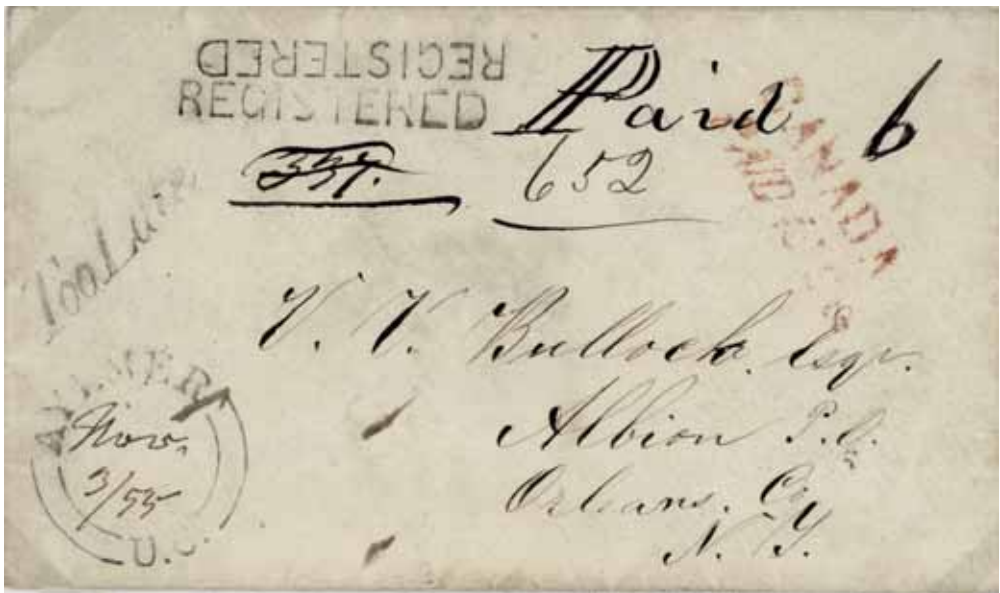 REGISTERED
REGISTERED
Paid 6
652
CANADA
PAID
Too Late
V. V. Bullock Esqr.
Albion P.O.
Orleans. Co
N. Y.
AYLMER
Nov.
3/55
U.C.